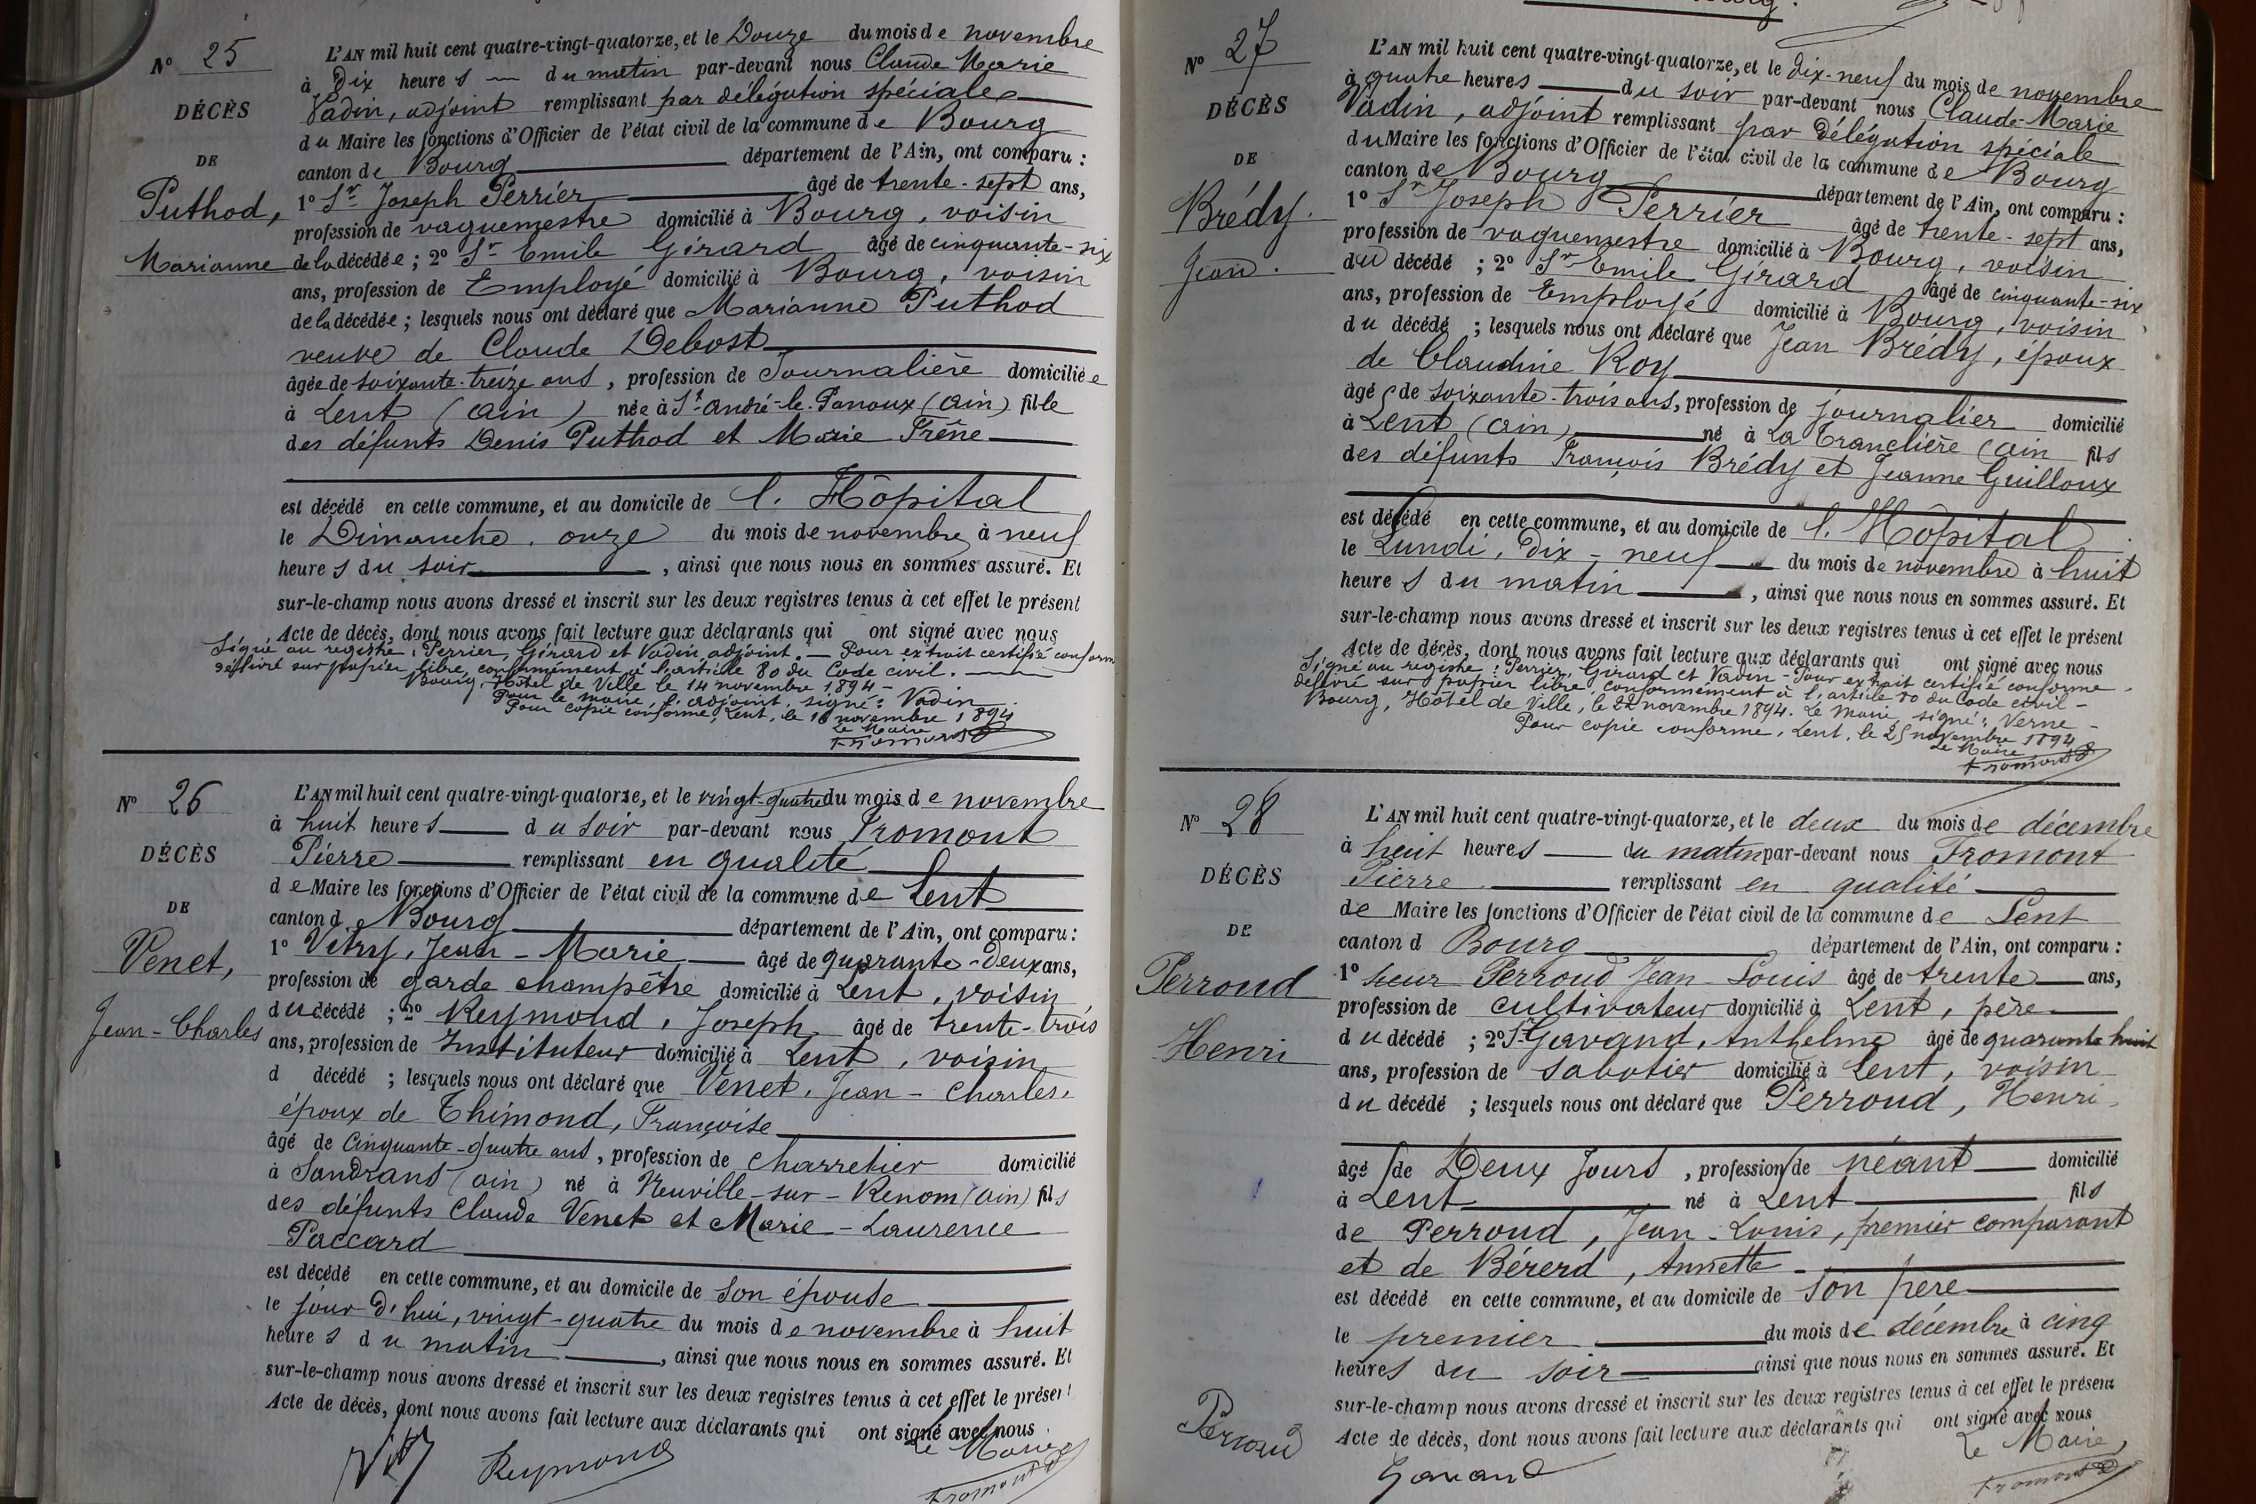 N° 25
DÉCÈS
DE
Puthod,
Marianne
L'AN mil huit cent quatre-vingt-quatorze, et le Douze du mois de novembre
à Dix heures du matin par-devant nous Claude Marie
Vadin, adjoint remplissant par délégation spéciale
du Maire les fonctions d'Officier de l'état civil de la commune de Bourg
canton de Bourg département de l'Ain, ont comparu :
1° Sr Joseph Perrier âgé de trente-sept ans,
profession de vaguemestre domicilié à Bourg, voisin
de la décédée ; 2° Sr Emile Girard âgé de cinquante-six
ans, profession de Employé domicilié à Bourg, voisin
de la décédée ; lesquels nous ont déclaré que Marianne Puthod
veuve de Claude Debost
âgée de soixante-treize ans, profession de Journalière domiciliée
à Lent (Ain) née à St-André-le-Panoux (Ain) fille
des défunts Denis Puthod et Marie Frêne
est décédé en cette commune, et au domicile de l'Hôpital
le Dimanche, onze du mois de novembre à neuf
heures du soir, ainsi que nous nous en sommes assuré. Et
sur-le-champ nous avons dressé et inscrit sur les deux registres tenus à cet effet le présent
Acte de décès, dont nous avons fait lecture aux déclarants qui ont signé avec nous
Signé au registre : Perrier, Girard et Vadin adjoint. — Pour extrait certifié conforme
délivré sur papier libre, conformément à l'article 80 du Code civil.
Bourg, Hôtel de Ville le 14 novembre 1894 -
Pour le maire, l'adjoint, signé : Vadin
Pour copie conforme, Lent, le 16 novembre 1894
Le Maire
Fromont
N° 26
DÉCÈS
DE
Venet,
Jean-Charles
L'AN mil huit cent quatre-vingt-quatorze, et le vingt-quatre du mois de novembre
à huit heures du soir par-devant nous Fromont
Pierre remplissant en qualité
de Maire les fonctions d'Officier de l'état civil de la commune de Lent
canton d Bourg département de l'Ain, ont comparu :
1° Vitry, Jean-Marie âgé de quarante-deux ans,
profession de garde champêtre domicilié à Lent, voisin
du décédé ; 2° Reymond, Joseph, âgé de trente-trois
ans, profession de Instituteur domicilié à Lent, voisin
d décédé ; lesquels nous ont déclaré que Venet, Jean-Charles,
époux de Thimond, Françoise
âgé de cinquante-quatre ans, profession de charretier domicilié
à Sandrans (Ain) né à Neuville-sur-Renom (Ain) fils
des défunts Claude Venet et Marie-Laurence
Paccard
est décédé en cette commune, et au domicile de son épouse
le jour d'hui, vingt-quatre du mois de novembre à huit
heures du matin, ainsi que nous nous en sommes assuré. Et
sur-le-champ nous avons dressé et inscrit sur les deux registres tenus à cet effet le présent
Acte de décès, dont nous avons fait lecture aux déclarants qui ont signé avec nous
Le Maire
Vitry Reymond Fromont
N° 27
DÉCÈS
DE
Brédy.
Jean.
L'AN mil huit cent quatre-vingt-quatorze, et le dix-neuf du mois de novembre
à quatre heures du soir par-devant nous Claude-Marie
Vadin, adjoint remplissant par délégation spéciale
du Maire les fonctions d'Officier de l'état civil de la commune de Bourg
canton de Bourg département de l'Ain, ont comparu :
1° Sr Joseph Perrier âgé de trente-sept ans,
profession de vaguemestre domicilié à Bourg, voisin
du décédé ; 2° Sr Emile Girard âgé de cinquante-six
ans, profession de Employé domicilié à Bourg, voisin
du décédé ; lesquels nous ont déclaré que Jean Brédy, époux
de Claudine Roy
âgé de soixante-trois ans, profession de journalier domicilié
à Lent (Ain) né à La Tranclière (Ain fils
des défunts François Brédy et Jeanne Guilloux
est décédé en cette commune, et au domicile de l'Hôpital
le Lundi, Dix-neuf du mois de novembre à huit
heures du matin, ainsi que nous nous en sommes assuré. Et
sur-le-champ nous avons dressé et inscrit sur les deux registres tenus à cet effet le présent
Acte de décès, dont nous avons fait lecture aux déclarants qui ont signé avec nous
Signé au registre : Perrier, Girard et Vadin - Pour extrait certifié conforme
délivré sur papier libre, conformément à l'article 80 du Code civil -
Bourg, Hôtel de Ville, le 22 novembre 1894. Le Maire, signé : Verne -
Pour copie conforme, Lent, le 25 novembre 1894
Le Maire
Fromont
N° 28
DÉCÈS
DE
Perroud
Henri
L'AN mil huit cent quatre-vingt-quatorze, et le deux du mois de décembre
à huit heures du matin par-devant nous Fromont
Pierre remplissant en qualité
de Maire les fonctions d'Officier de l'état civil de la commune de Lent
canton d Bourg département de l'Ain, ont comparu :
1° sieur Perroud Jean-Louis âgé de trente ans,
profession de cultivateur domicilié à Lent, père
du décédé ; 2° Sr Gavand, Anthelme âgé de quarante huit
ans, profession de sabotier domicilié à Lent, voisin
du décédé ; lesquels nous ont déclaré que Perroud, Henri,
âgé de Deux jours, profession de néant domicilié
à Lent né à Lent fils
de Perroud, Jean-Louis, premier comparant
et de Bérerd, Annette
est décédé en cette commune, et au domicile de son père
le premier du mois de décembre à cinq
heures du soir ainsi que nous nous en sommes assuré. Et
sur-le-champ nous avons dressé et inscrit sur les deux registres tenus à cet effet le présent
Acte de décès, dont nous avons fait lecture aux déclarants qui ont signé avec nous
Le Maire,
Perroud Gavand Fromont